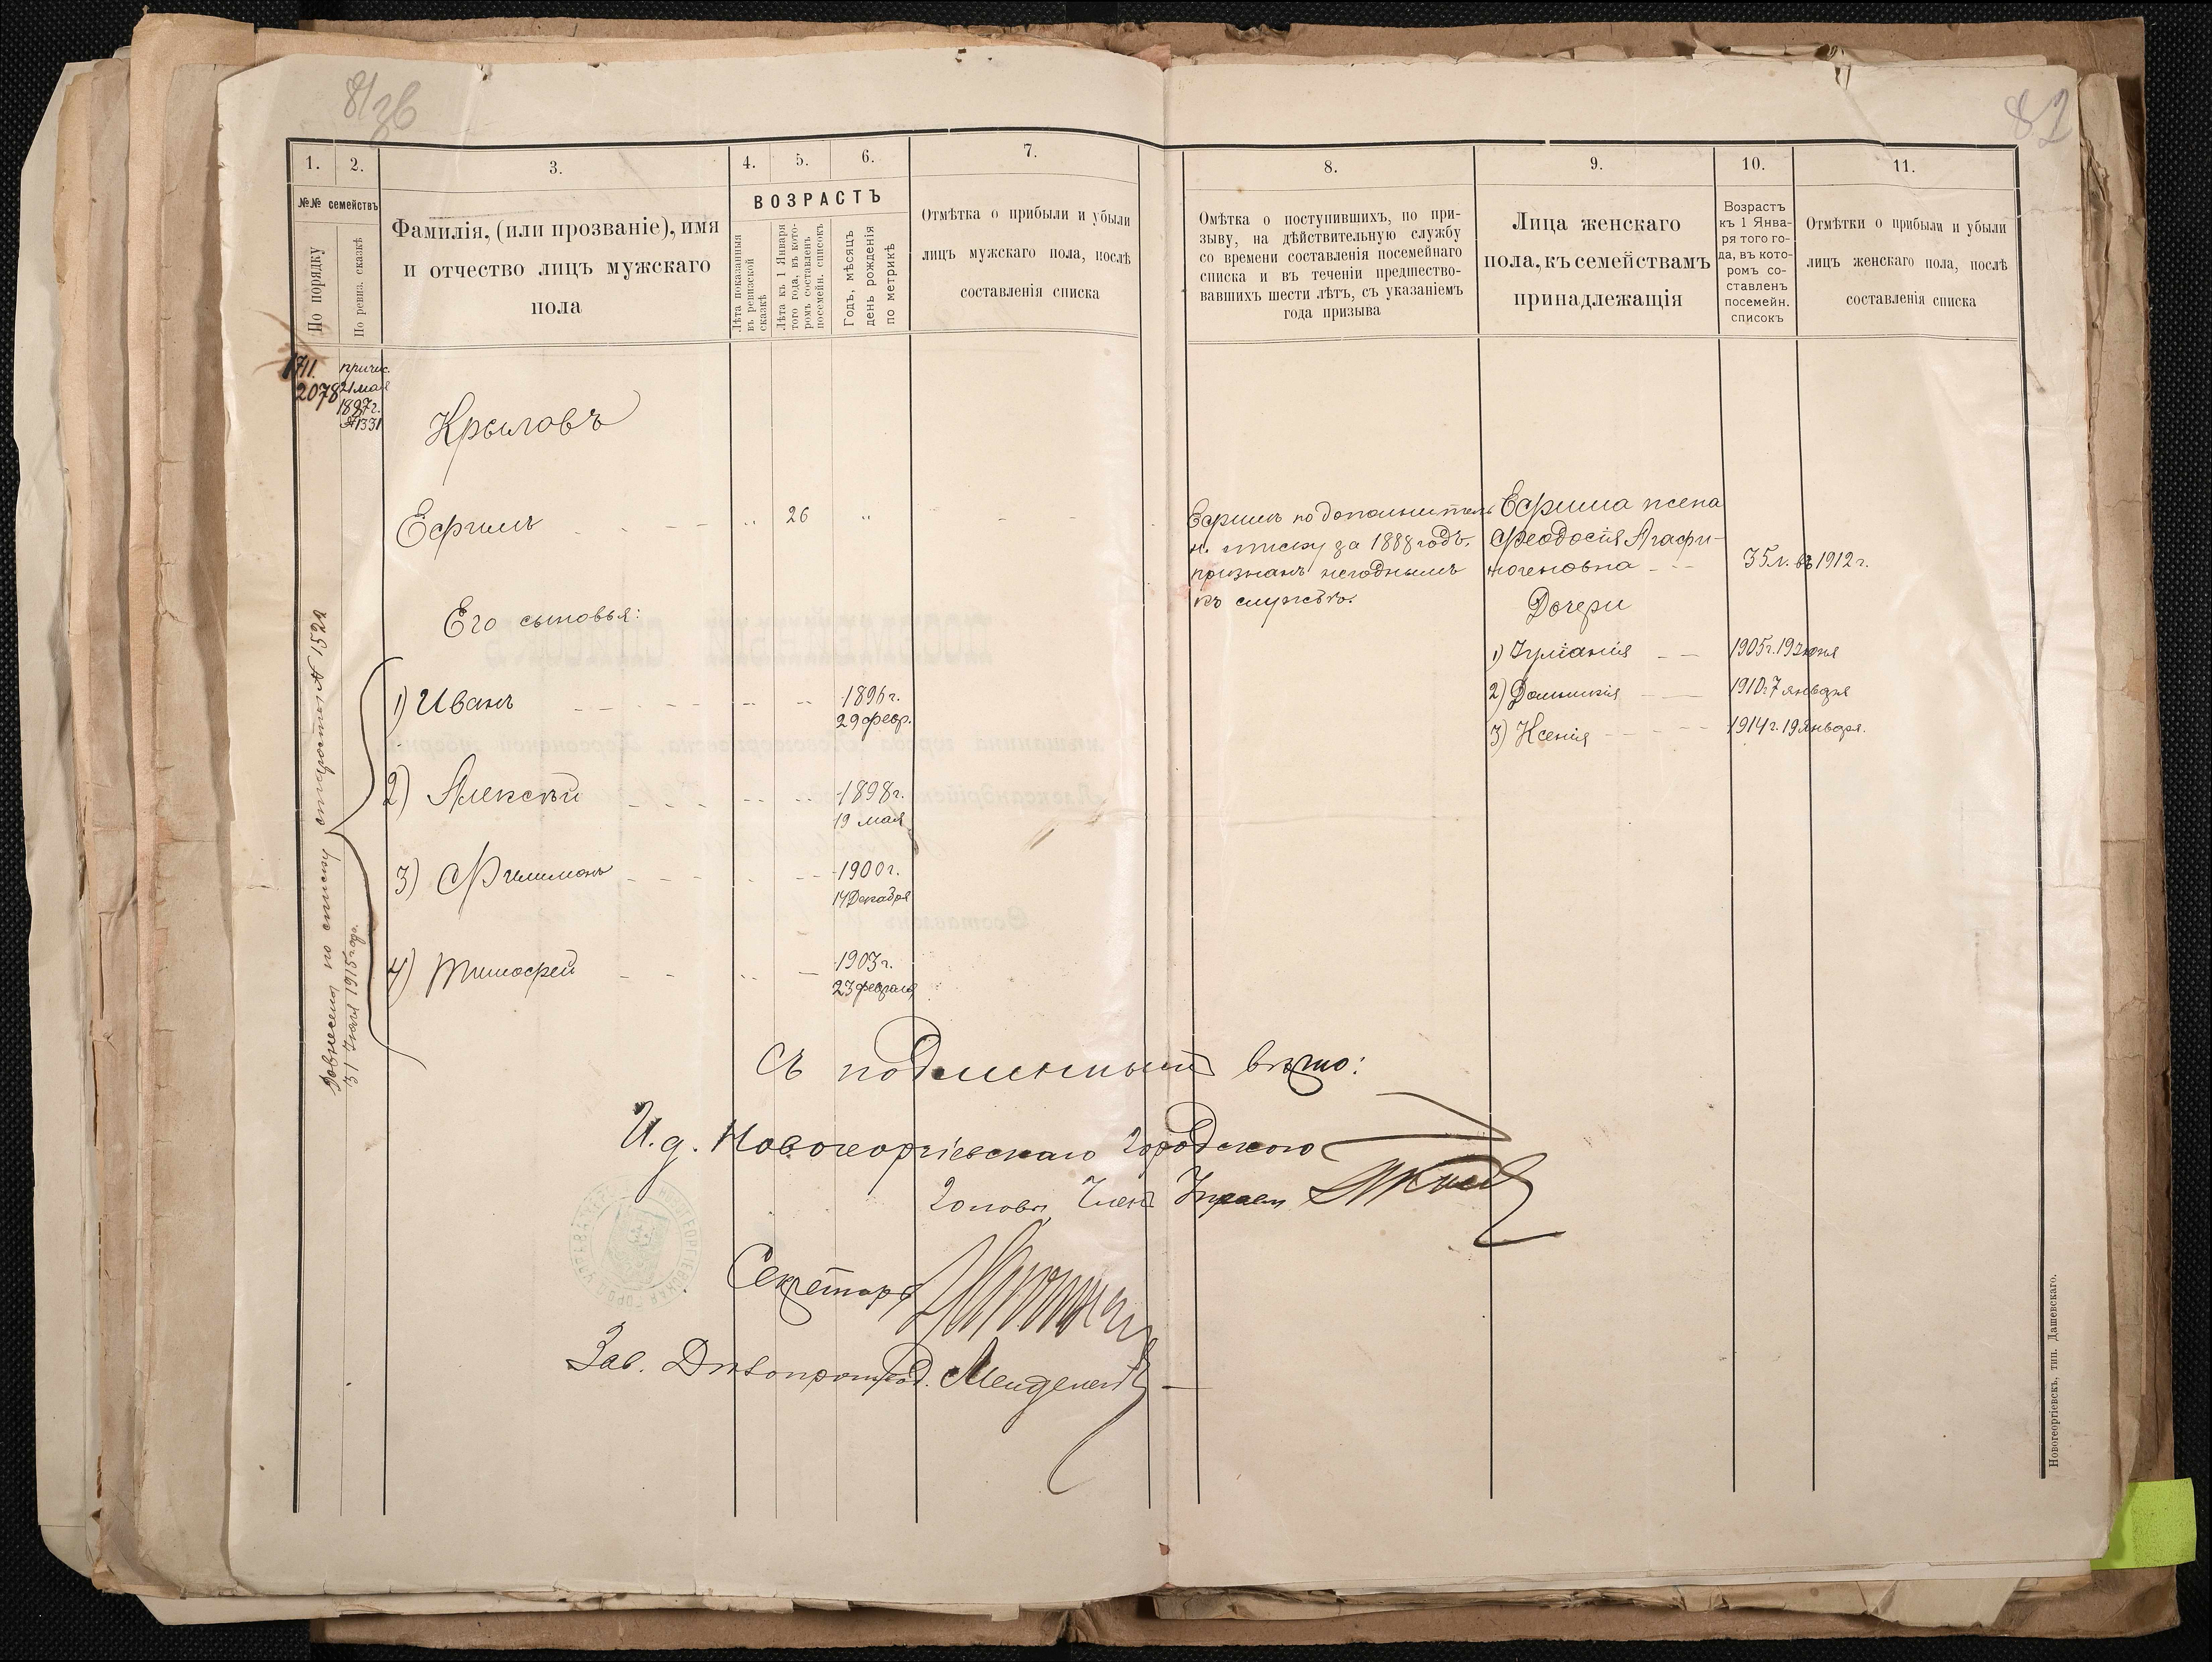 81
36
82
1.
2.
3.
4.
5.
6.
7.
8.
9.
10.
11.
№№ семействъ
По порядку
По ревиз. сказкѣ
Фамилія, (или прозваніе), имя
и отчество лицъ мужскаго
пола
ВОЗРАСТЪ
Лѣта показанныя
въ ревизской
сказкѣ
Лѣта къ 1 Января
того года, въ кото-
ромъ составленъ
посемейн. списокъ
Годъ, мѣсяцъ
день рожденія
по метрикѣ
Отмѣтка о прибыли и убыли
лицъ мужскаго пола, послѣ
составленія списка
Омѣтка о поступившихъ, по при-
зыву, на дѣйствительную службу
со времени составленія посемейнаго
списка и въ теченіи предшество-
вавшихъ шести лѣтъ, съ указаніемъ
года призыва
Лица женскаго
пола, къ семействамъ
принадлежащія
Возрастъ
къ 1 Янва-
ря того го-
да, въ кото-
ромъ со-
ставленъ
посемейн.
списокъ
Отмѣтки о прибыли и убыли
лицъ женскаго пола, послѣ
составленія списка
1711.
2078
причис.
21 мая
1887 г.
№1331
Крыловъ
Ефимъ - - - - „ 26 „ - - -
Его сыновья:
1) Иванъ 1896 г.
29 февр.
2) Алексѣй 1898 г.
19 мая
3) Филимонъ 1900 г.
14 Декабря
4) Тимофей 1903 г.
23 февраля
по списку старосты № 1522
31 Іюля 1915 года.
Ефимъ по дополнитель
н. списку за 1888 годъ,
признанъ негоднымъ
къ службѣ.
Ефима жена
Феодосія Агафи-
ногеновна - - 35 л. въ 1912 г.
Дочери
1) Іуліанія - - 1905 г. 19 Іюня
2) Домникія - - 1910 г. 7 января
3) Ксенія - - - - 1914 г. 19 Января.
Съ подлиннымъ вѣрно:
И.д. Новогеоргіевскаго Городского
Головы, Членъ Управы
Секретарь
Зав. Дѣлопроизвод.
Новогеоргіевскъ, тип. Дашевскаго.